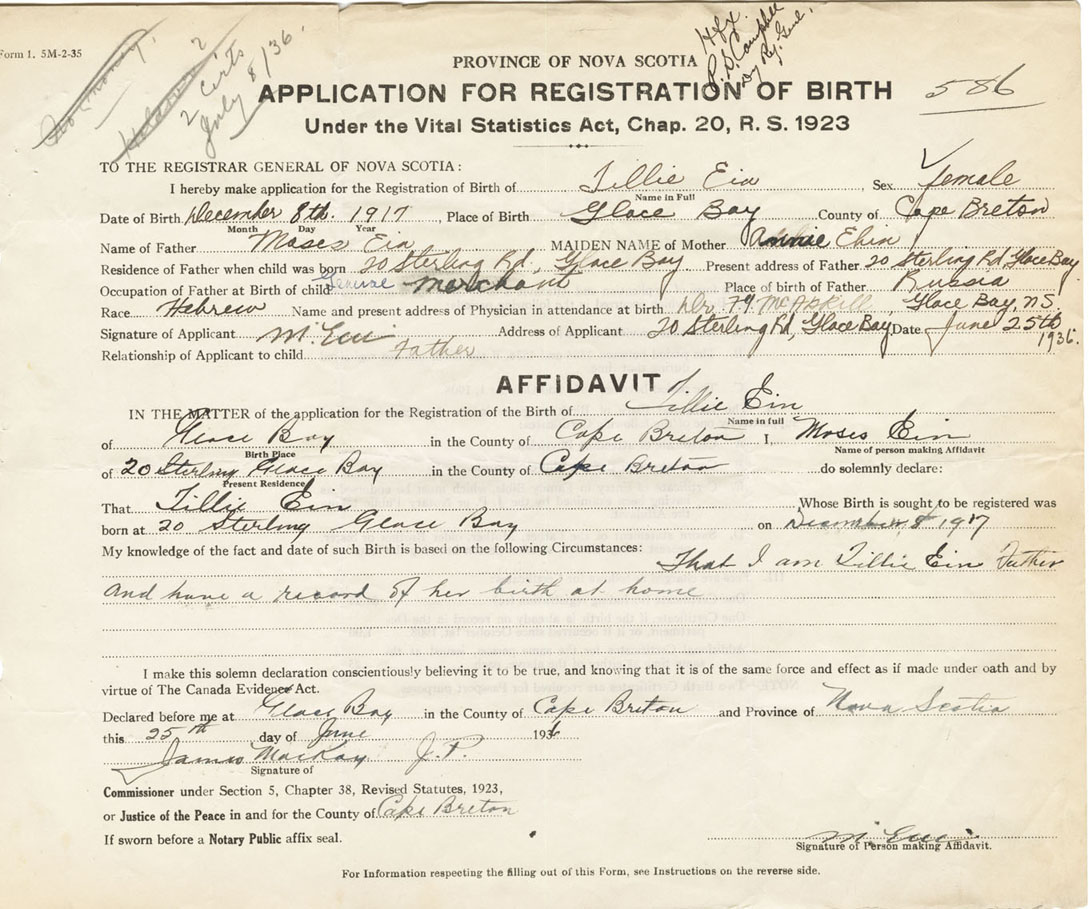 Form 1. 5M-2-35
2 Certs
July 8/36.
PROVINCE OF NOVA SCOTIA
APPLICATION FOR REGISTRATION OF BIRTH
586
Under the Vital Statistics Act, Chap. 20, R. S. 1923
TO THE REGISTRAR GENERAL OF NOVA SCOTIA:
I hereby make application for the Registration of Birth of Tillie Ein Sex Female
Name in Full
Date of Birth December 8th. 1917, Place of Birth Glace Bay County of Cape Breton
Month Day Year
Name of Father Moses Ein MAIDEN NAME of Mother Annie Ehin
Residence of Father when child was born 20 Sterling Rd, Glace Bay Present address of Father 20 Sterling Rd, Glace Bay
Occupation of Father at Birth of child General Merchant Place of birth of Father Russia
Race Hebrew Name and present address of Physician in attendance at birth Dr. Glace Bay, N.S.
Signature of Applicant M. Ein Address of Applicant 20 Sterling Rd, Glace Bay Date June 25th 1936.
Relationship of Applicant to child Father
AFFIDAVIT
IN THE MATTER of the application for the Registration of the Birth of Tillie Ein
Name in full
of Glace Bay in the County of Cape Breton I, Moses Ein
Birth Place Name of person making Affidavit
of 20 Sterling Glace Bay in the County of Cape Breton do solemnly declare:
Present Residence
That Tillie Ein Whose Birth is sought to be registered was
born at 20 Sterling Glace Bay on December 8 1917
My knowledge of the fact and date of such Birth is based on the following Circumstances:
That I am Tillie Ein Father
and have a record of her birth at home
I make this solemn declaration conscientiously believing it to be true, and knowing that it is of the same force and effect as if made under oath and by
virtue of The Canada Evidence Act.
Declared before me at Glace Bay in the County of Cape Breton and Province of Nova Scotia
this 25th day of June 1936
James MacKay J.P.
Signature of
Commissioner under Section 5, Chapter 38, Revised Statutes, 1923,
or Justice of the Peace in and for the County of Cape Breton
If sworn before a Notary Public affix seal.
M. Ein
Signature of Person making Affidavit.
For Information respecting the filling out of this Form, see Instructions on the reverse side.